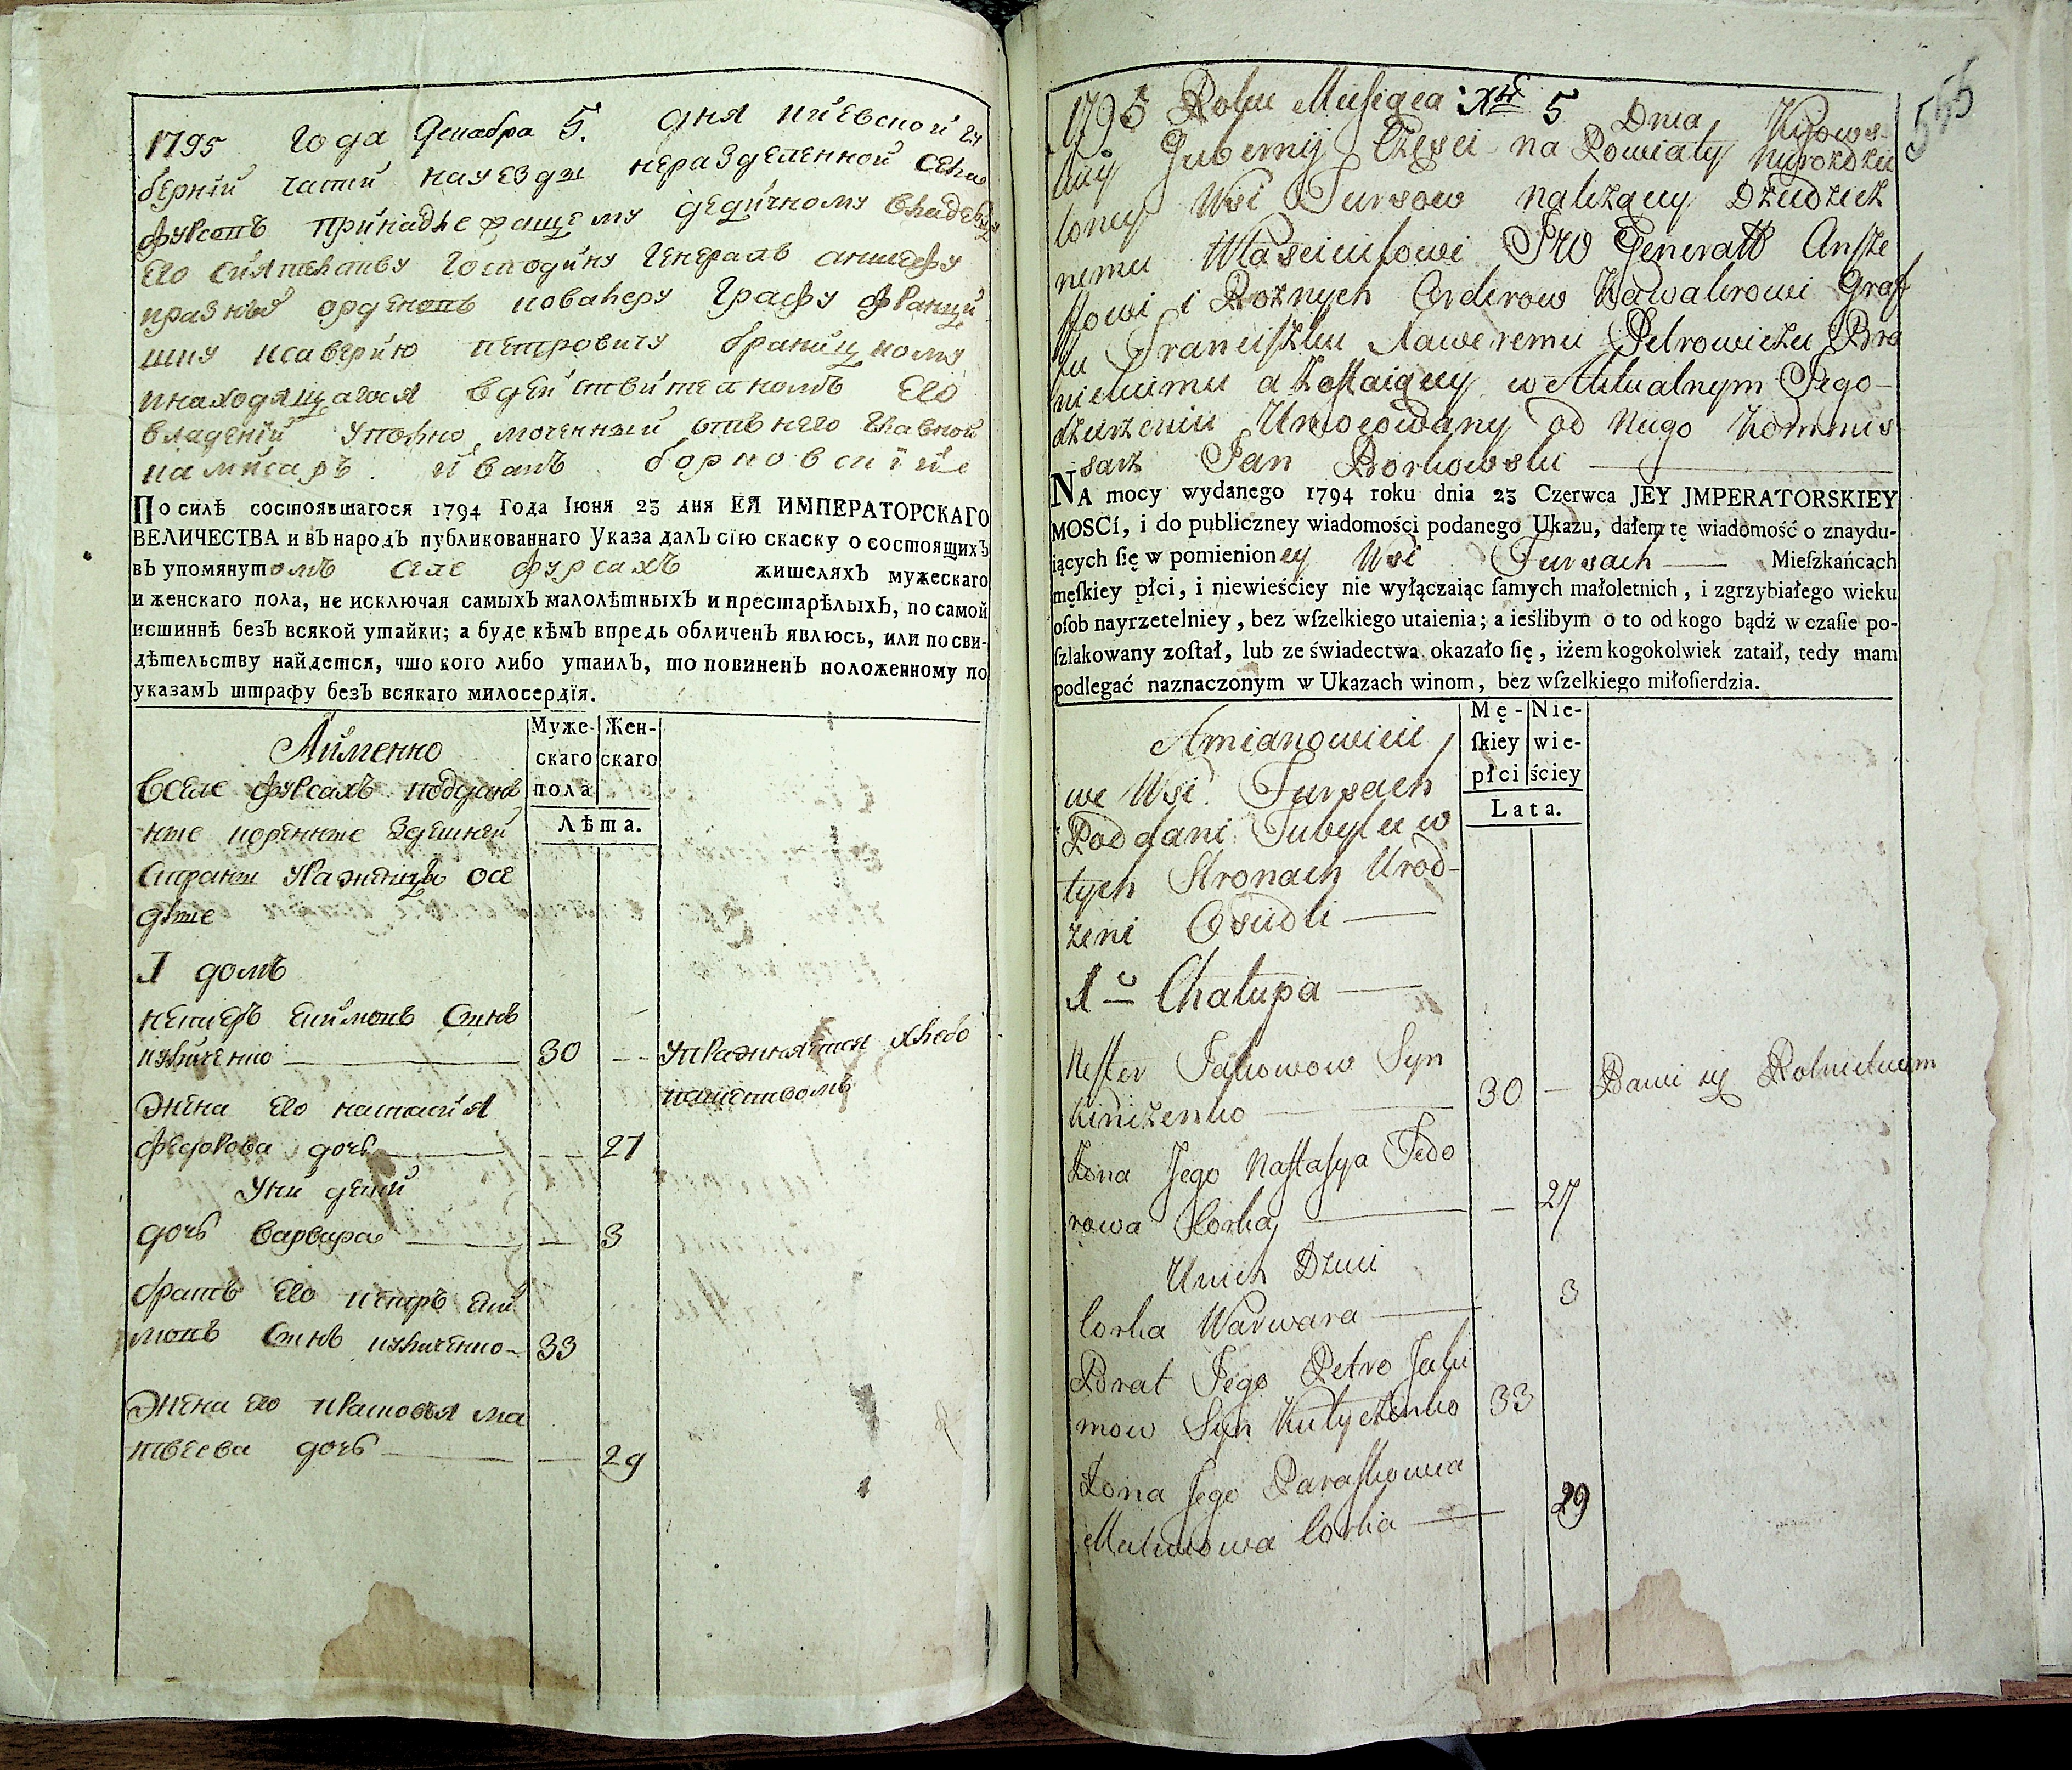 1795 года Декабря 5. дня киевской гу
берніи части науезды неразделенной села
фурсовъ принадлежащему дедичному владельцу
Его сиятельству господину генералъ аншефу
и разныхъ орденовъ кавалеру графу францы
шку ксаверию петровичу браницкому
инаходящагося вдействительномъ его
владении уполно моченный отъ него главной
камисаръ иванъ борковскій
По силѣ состоявшагося 1794 Года Іюня 23 дня ЕЯ ИМПЕРАТОРСКАГО
ВЕЛИЧЕСТВА и въ народъ публикованнаго Указа далъ сію скаску о состоящихъ
въ упомянутомъ селе фурсахъ жителяхъ мужескаго
и женскаго пола, не исключая самыхъ малолѣтныхъ и престарѣлыхъ, по самой
истиннѣ безъ всякой утайки; а буде кѣмъ впредь обличенъ явлюсь, или по сви-
дѣтельству найдется, что кого либо утаилъ, то повиненъ положенному по
указамъ штрафу безъ всякаго милосердїя.
Аименно
Муже-
скаго
пола
Жен-
скаго
Лѣта.
вселе фурсахъ подда
ные коренные здешней
стране уроженцы осе
длые
I домъ
нестеръ екимовъ сынъ
куличенко 30 — упражняется хлебо
пашествомъ
жена его настасия
федорова дочь — 27
уни детей
дочь варвара — 3
братъ его петръ еки
мовъ сынъ куличенко 33
жена его прасковья ма
твеева дочь — 29
555
1795 Roku Miesiąca Xbr 5 Dnia Kijows-
kiey Gubernij Części na Powiaty nierozdzie
loney Wsi Fursow należący Dziedzicz
nemu Włascicielowi JW Generałł Ansze
ffowi i Rożnych Orderow Kawalerowi Graf
fu Franciszku Xaweremu Petrowiczu Bra
nickiemu a Zostaiący w Aktualnym Jego
dzierzeniu Umocowany od niego Kommis
sarz Jan Borkowski
NA mocy wydanego 1794 roku dnia 23 Czerwca JEY JMPERATORSKIEY
MOSCí, i do publiczney wiadomości podanego Ukazu, dałem tę wiadomość o znaydu-
iących ſię w pomienioney Wsi Fursach Mieſzkańcach
męſkiey płci, i niewieściey nie wyłączaiąc ſamych małoletnich, i zgrzybiałego wieku
oſob nayrzetelniey, bez wſzelkiego utaienia; a ieślibym o to od kogo bądź w czaſie po-
ſzlakowany zoſtał, lub ze świadectwa okazało ſię, iżem kogokolwiek zataił, tedy mam
podlegać naznaczonym w Ukazach winom, bez wſzelkiego miłoſierdzia.
Amianowicie
Mę-
ſkiey
płci
Nie-
wie-
ściey
Lata.
we Wsi Fursach
Poddani Tubylcy w
tych Stronach Urod-
zeni Osiedli
1o Chałupa
Nester Jakowow Syn
30 — Bawi się Rolnictwem
Zona Jego Nastasya Fedo
rowa Corka — 27
Unich Dzieci
Corka Warwara 3
Brat Jego Petro Jaki
mow Syn Kulyczenko 33
Zona Jego Paraskowia
Matwiowa Corka 29